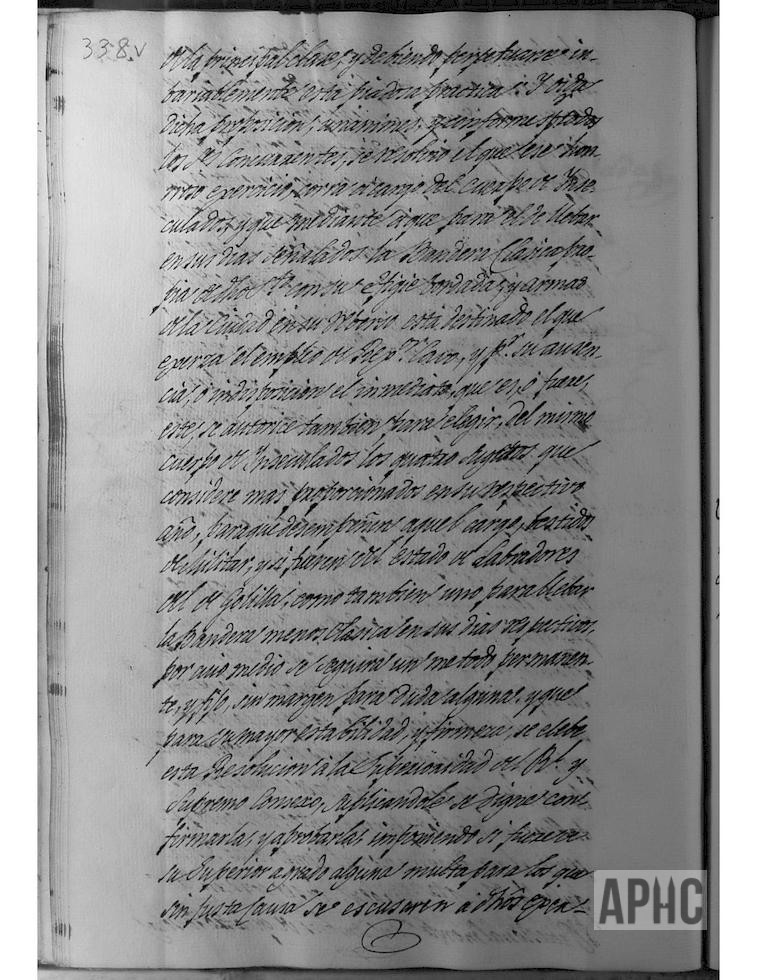 338v
de la principal clase, y debiendo perpetuarse in-
bariablemente esta piadosa practica: Y oida
dicha proposicion, unanimes, y conformes todos
los Sres Concurrentes, se resolvio el que ese hon-
rroso exercicio corra a cargo del Cuerpo de Inse-
culados, y que mediante a que para el de llebar
en sus dias señalados la Bandera Clasica pro-
pia de dho Sto con su efigie bordada, y armas
de la Ciudad en su reberso está destinado el que
exerza el empleo de Regor Cavo, y pr su ausen-
cia, o indisposicion el inmediato, que es, ó fuere,
este, se autorice tambien para elegir, del mismo
cuerpo de Inseculados los quatro sugetos que
considere mas proporcionados en su respectivo
año, para que desempeñen aquel cargo, bestidos
de Militar, y si fueren del estado de Labradores
del de Golilla, como tambien uno para llebar
la Bandera menos clasica en sus dias respectivos,
por cuio medio se seguira un metodo permanen-
te, y fijo, sin margen para duda alguna, y que
para su mayor estabilidad, y firmeza, se elebe
esta Resolucion à la Superioridad del Rl. y
Supremo Consexo, suplicandole se digne con-
firmarla, y aprobarla, imponiendo si fuere de
su Superior agrado alguna multa para los que
sin justa Causa se escusaren à dhos
APHC